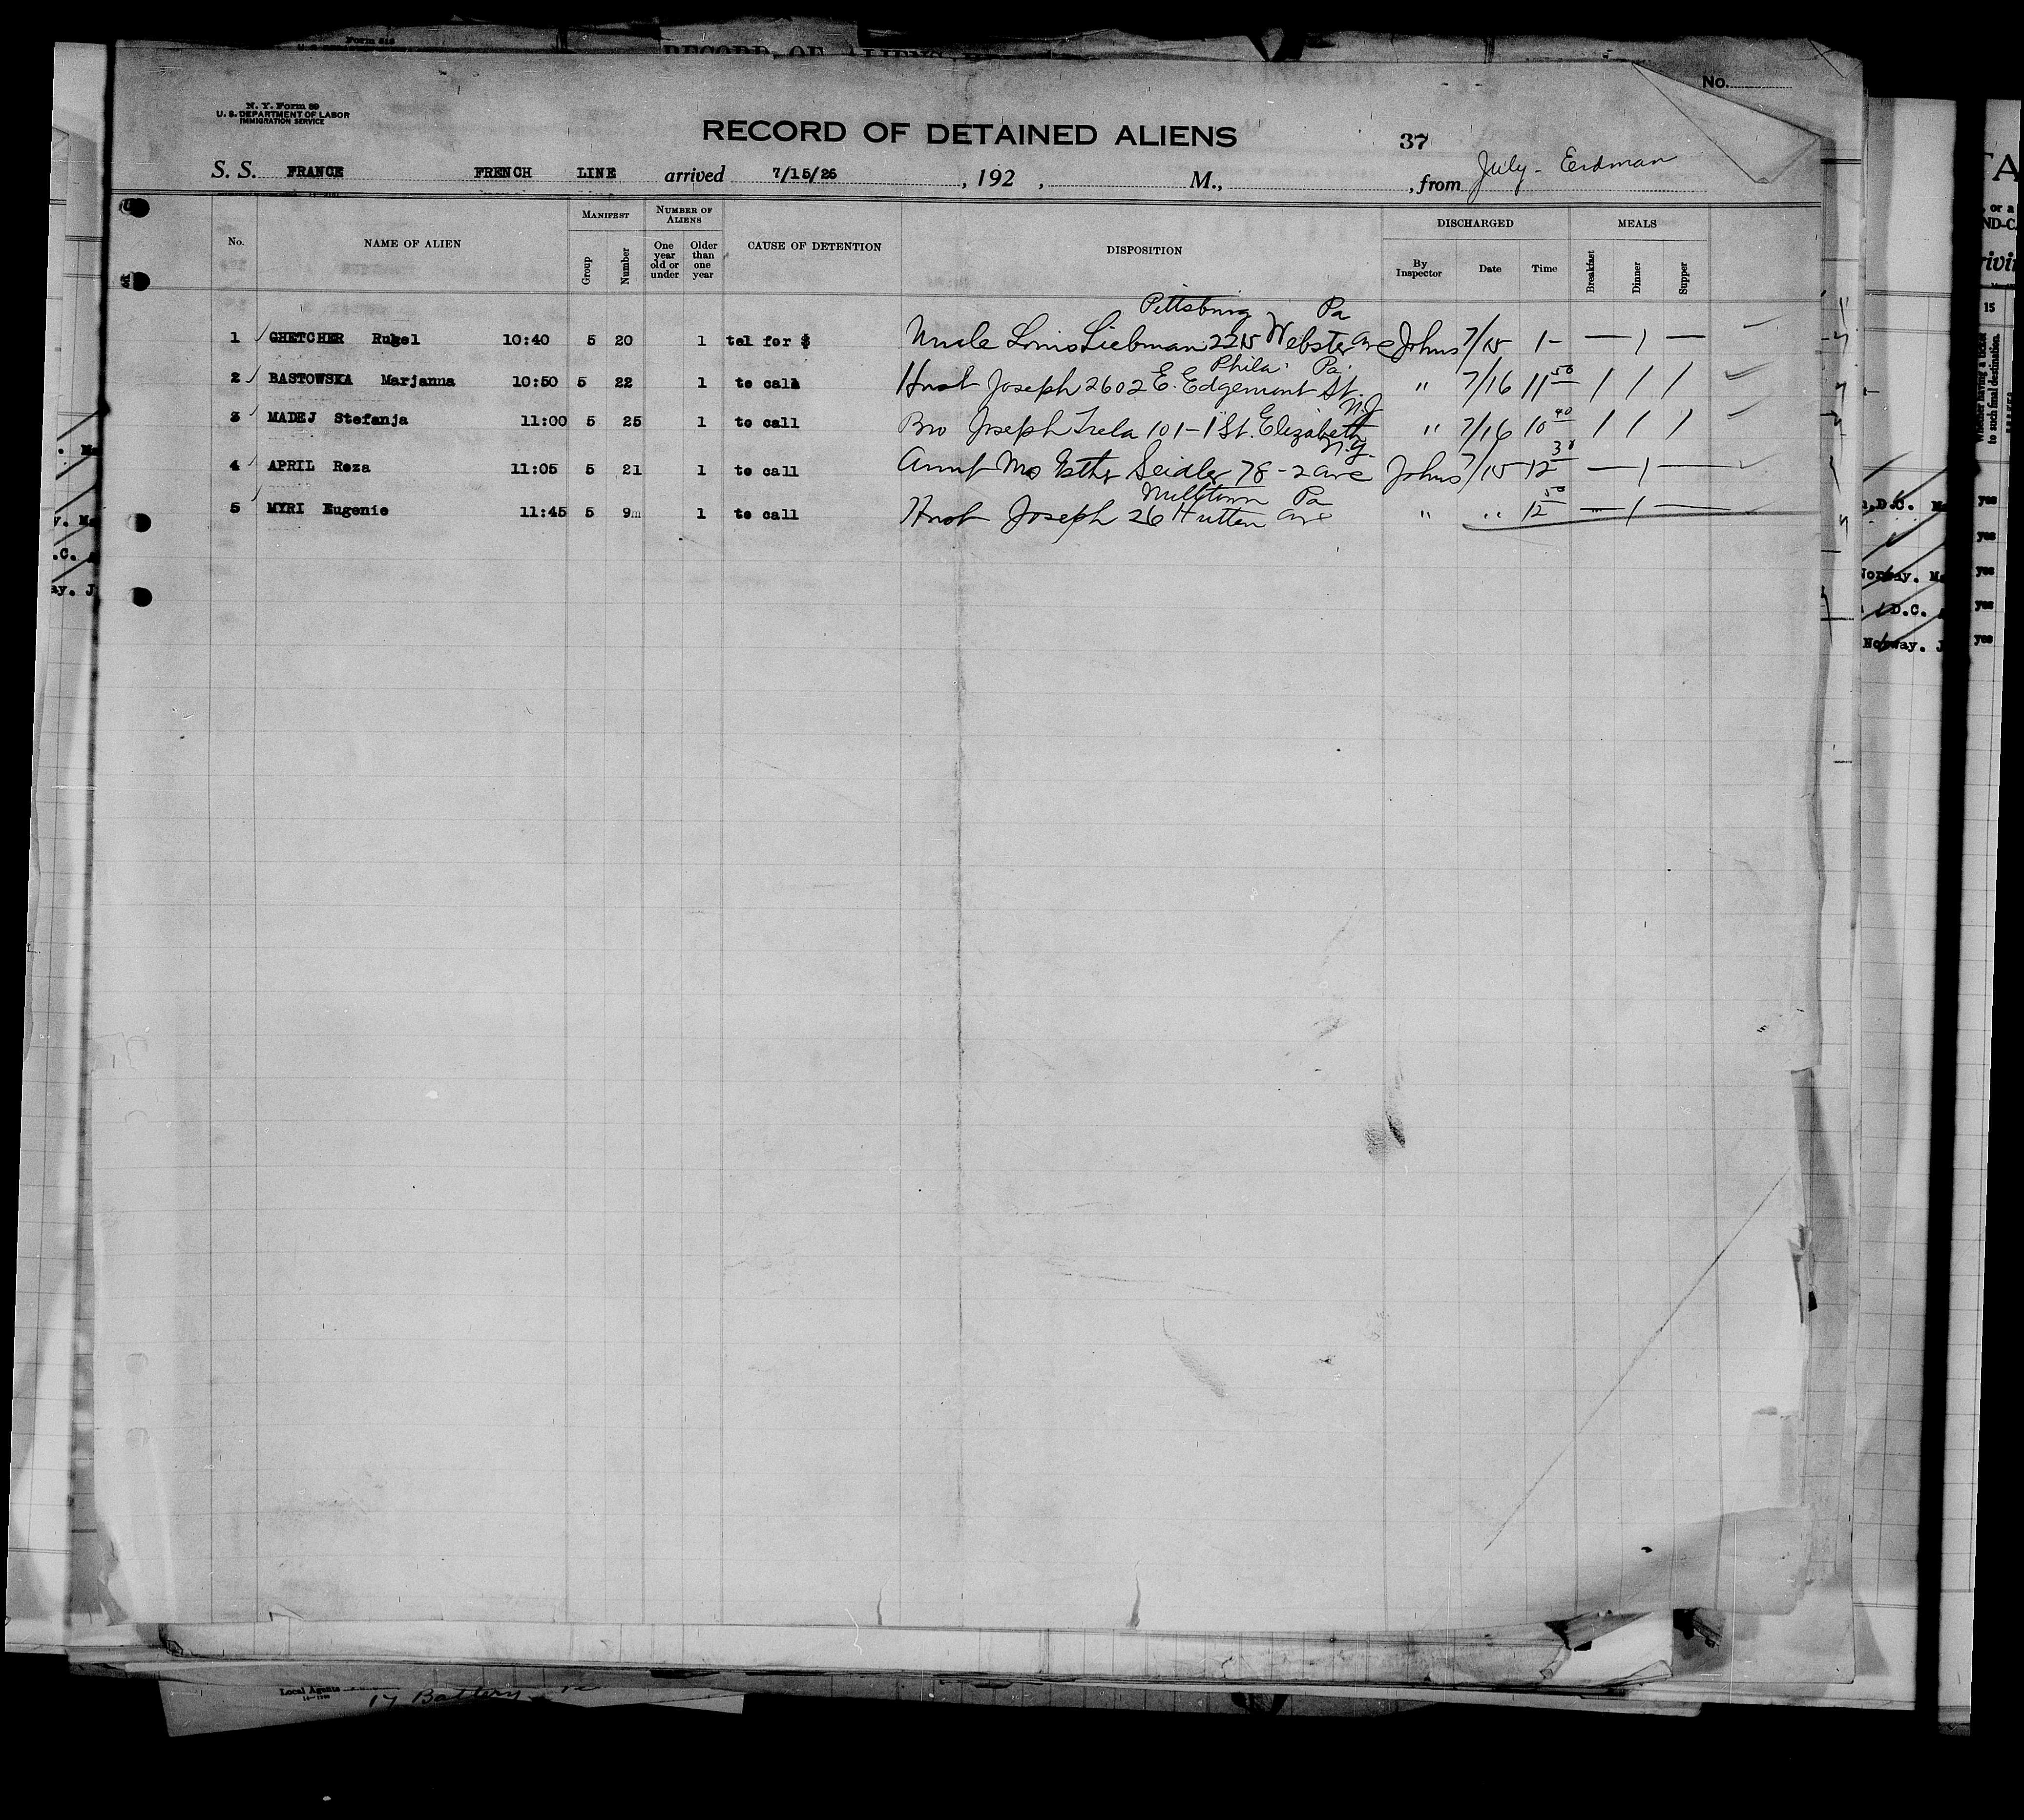 Form 616
RECORD OF ALIENS
No.
N. Y. Form 89
U. S. DEPARTMENT OF LABOR
IMMIGRATION SERVICE
RECORD OF DETAINED ALIENS
37
S. S. FRANCE FRENCH LINE arrived 7/15/26, 192 , M., , from July - Erdman
No. NAME OF ALIEN MANIFEST Group Number NUMBER OF ALIENS One year old or under Older than one year CAUSE OF DETENTION DISPOSITION DISCHARGED By Inspector Date Time MEALS Breakfast Dinner Supper
Pittsburg Pa
1 GHETCHER Rugel 10:40 5 20 1 tel for $ Uncle Louis Liebman 2215 Webster Ave Johns 7/15 1- — 1 —
Phila Pa
2 BASTOWSKA Marjanna 10:50 5 22 1 to call Husb Joseph 2602 E. Edgemont St. " 7/16 11 50 1 1 1
N.J
3 MADEJ Stefanja 11:00 5 25 1 to call Bro Joseph Trela 101-1 St. Elizabeth " 7/16 10 40 1 1 1
N.Y.
4 APRIL Roza 11:05 5 21 1 to call Aunt Mrs Esther Seidler 78-2 Ave Johns 7/15 12 30 — 1 —
Milltown Pa
5 MYRI Eugenie 11:45 5 9m 1 to call Husb Joseph 26 Hutten Ave " " 12 50 — 1 —
15
Whether having a ticket to such final destination.
D.C.
yes
yes
Norway.
yes
D.C.
yes
Norway.
yes
Local Agents
17 Battery